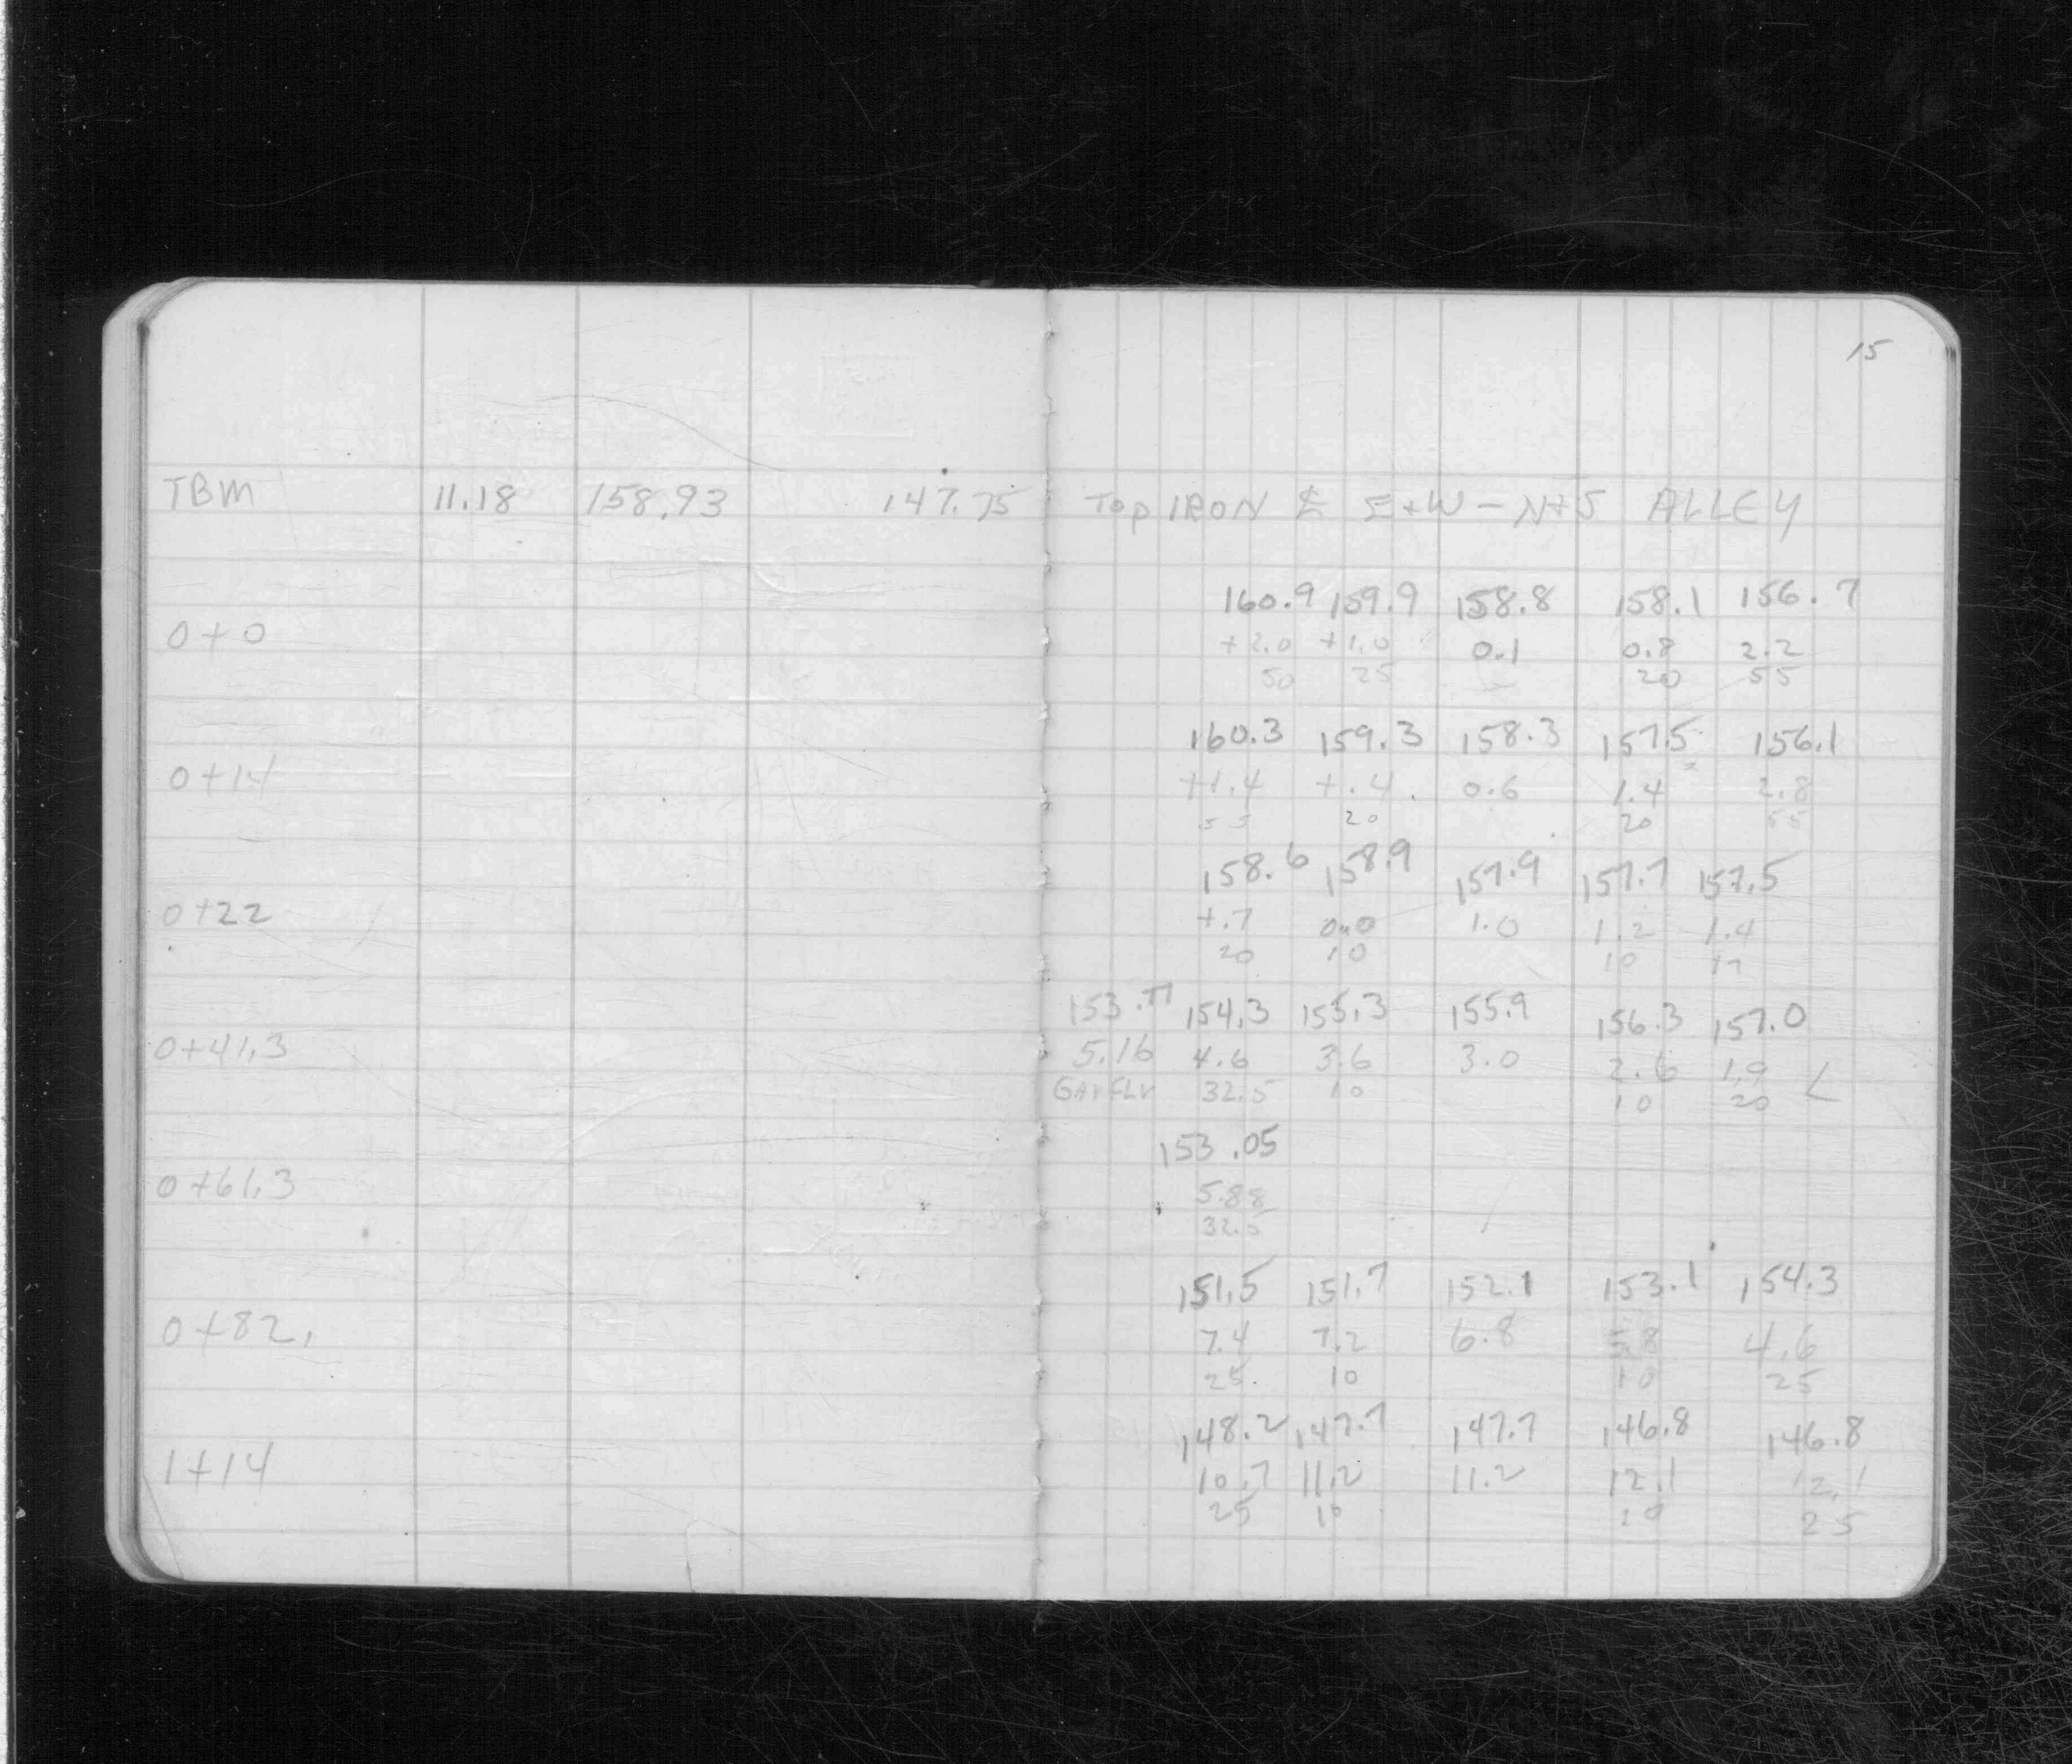 15
TBM 11.18 158.93 147.75 Top IRON ℄ E+W - N+S ALLEY
160.9 159.9 158.8 158.1 156.7
0+0 +2.0 +1.0 0.1 0.8 2.2
50 25 20 55
160.3 159.3 158.3 157.5 156.1
0+14 +1.4 +.4 0.6 1.4 2.8
55 20 20 55
158.6 158.9 157.9 157.7 157.5
0+22 +.7 0.0 1.0 1.2 1.4
20 10 10 17
153.77 154.3 155.3 155.9 156.3 157.0
0+41.3 5.16 4.6 3.6 3.0 2.6 1.9
GAr FLr 32.5 10 10 20 L
153.05
0+61.3 5.88
32.5
151.5 151.7 152.1 153.1 154.3
0+82. 7.4 7.2 6.8 5.8 4.6
25 10 10 25
148.2 147.7 147.7 146.8 146.8
1+14 10.7 11.2 11.2 12.1 12.1
25 10 10 25